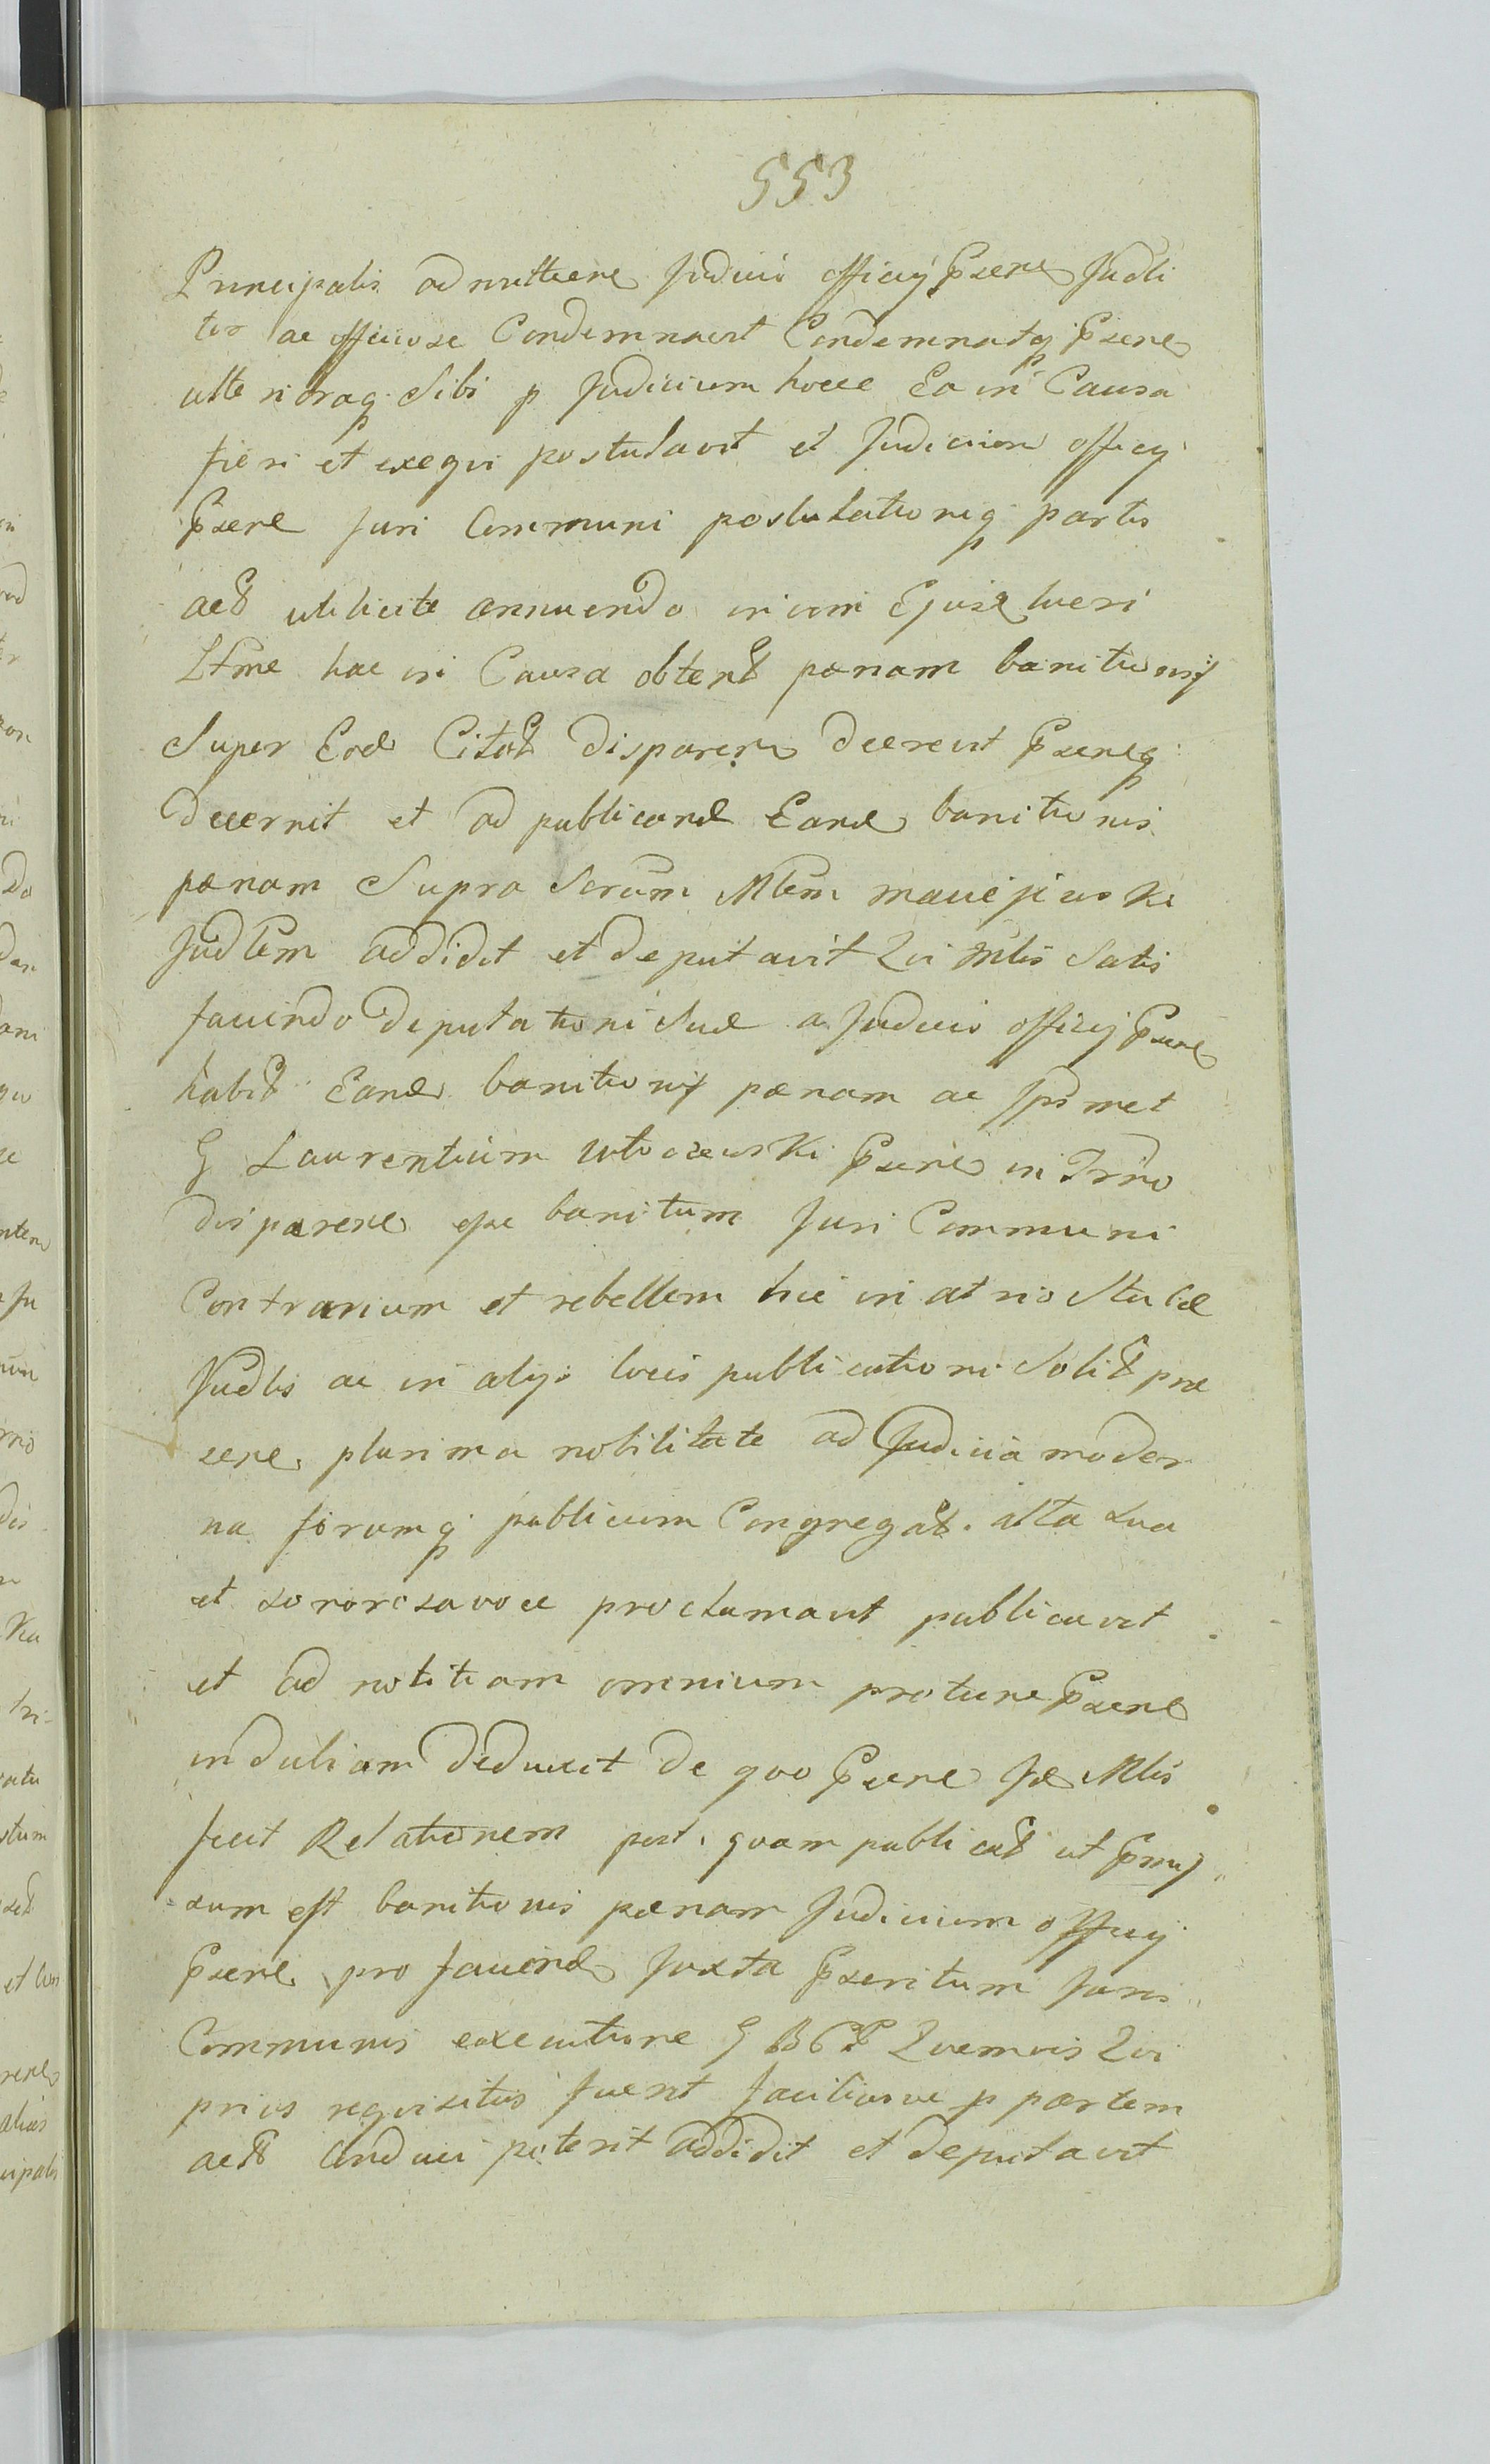 553
Principalis admittere Judicio officij Psene Judli
ter ac officiose Condemnavit Condemnatq Psene
ulterioraq sibi p Judicium hocce Ea in Causa
fieri et exequi postulavit et Judicium officij
Psene Juri Communi postulationiq partis
act uti licite annuendo in vim Ejusd lucri
Ltme hac in Causa obtent pænam banitionis
Super Eod Citat disparen decrevit Pseneq
decernit et ad publicand Eand banitionis
pænam Supra Scrum Mlem maciejiewski
Judlem addidit et deputavit Qui Mlis Satis
faciendo deputationi Suæ a Judicio officij Psene
habit Eand banitionis pænam ac Ipsmet
G Laurentium Włoczewski Psene in Trno
disparene esse banitum Juri Communi
Contrarium et rebellem hic in atrio Stubæ
Judlis ac in alijs locis publicationi Solit præ
sene plurima nobilitate ad Judicia moder
na forumq publicum Congregat alta sua
et sonorosa voce proclamavit publicavit
et ad notitiam omnium protunc Psene
indultam deduxit de quo Psene Id Mlis
fecit Relationem post quam publicat ut Pmis
sum est banitionis pænam Judicium officij
Psene pro faciend Juxta Pscritum Juris
Communis executione G B C P Quemvis Qui
prius requisitus fuerit faciliusve p partem
act Conduci poterit addidit et deputavit